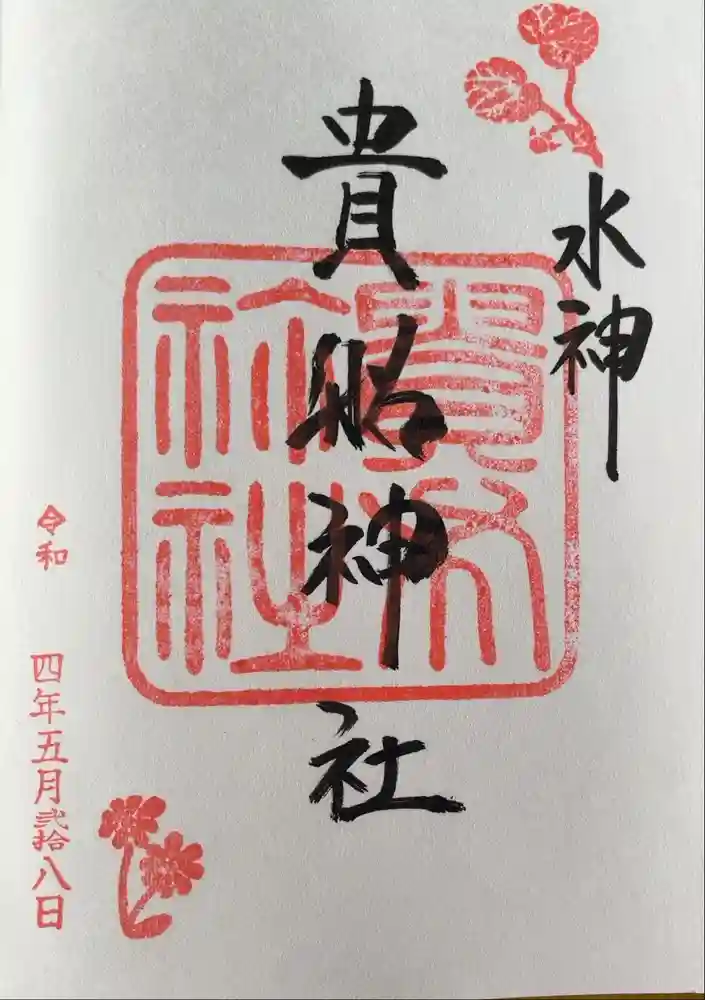 水神
貴船神社
令和 四年五月弐拾八日